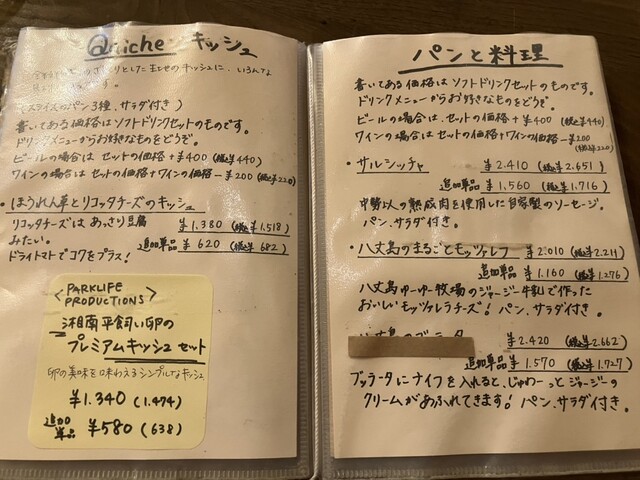 Quiche キッシュ
(スライスのパン3種、サラダ付き)
書いてある価格はソフトドリンクセットのものです。
ドリンクメニューからお好きなものをどうぞ。
ビールの場合は、セットの価格+¥400 (税込¥440)
ワインの場合は セットの価格+ワインの価格-¥200 (税込¥220)
・ほうれん草とリコッタチーズのキッシュ
リコッタチーズは あっさり豆腐 ¥1.380 (税込¥1.518)
みたい。 追加単品 ¥620 (税込¥682)
ドライトマトでコクをプラス!
<PARKLIFE PRODUCTIONS>
湘南平飼い卵の
プレミアムキッシュ セット
卵の美味を味わえるシンプルなキッシュ
¥1.340 (1.474)
追加単品 ¥580 (638)
パンと料理
書いてある価格は ソフトドリンクセットのものです。
ドリンクメニューからお好きなものをどうぞ。
ビールの場合は、セットの価格+¥400 (税込¥440)
ワインの場合は、セットの価格+ワインの価格-¥200
(税込¥220)
・サルシッチャ ¥2.410 (税込¥2.651)
追加単品 ¥1.560 (税込¥1.716)
中勢以の熟成肉を使用した自家製のソーセージ。
パン、サラダ付き。
・八丈島のまるごとモッツァレラ ¥2.010 (税込¥2.211)
追加単品 ¥1.160 (税込¥1.276)
八丈島ゆーゆー牧場のジャージー牛乳で作った
おいしいモッツァレラチーズ! パン、サラダ付き。
¥2.420 (税込¥2.662)
追加単品 ¥1.570 (税込¥1.727)
ブッラータにナイフを入れると、じゅわーっとジャージーの
クリームがあふれてきます! パン、サラダ付き。